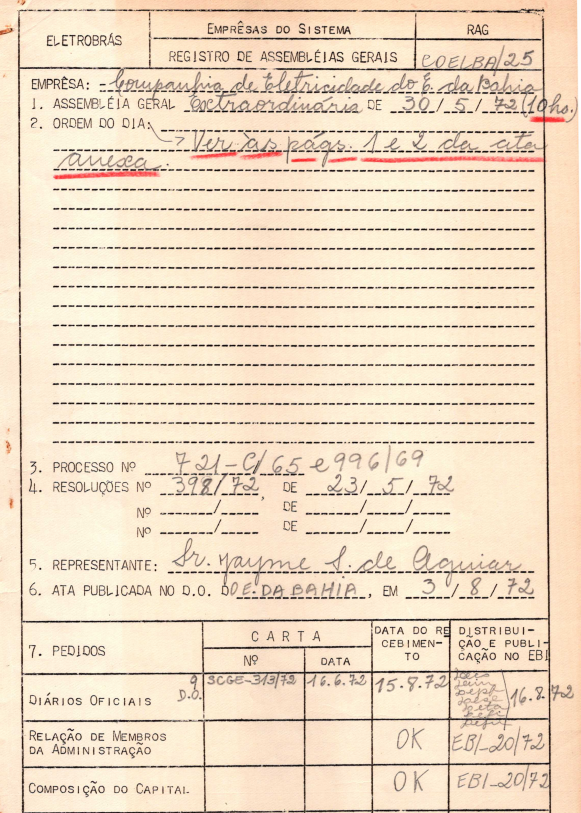 ELETROBRÁS
EMPRÊSAS DO SISTEMA
RAG
REGISTRO DE ASSEMBLÉIAS GERAIS
COELBA/25
EMPRÊSA: - Companhia de Eletricidade do E. da Bahia
1. ASSEMBLÉIA GERAL Extraordinária DE 30/5/72 (10hs.)
2. ORDEM DO DIA:
Ver às págs. 1 e 2 da ata
anexa.
3. PROCESSO Nº 721-C/65 e 996/69
4. RESOLUÇÕES Nº 398/72, DE 23/5/72
Nº / DE / /
Nº / DE / /
5. REPRESENTANTE: Sr. Jayme S. de Aguiar
6. ATA PUBLICADA NO D.O. DO E. DA BAHIA, EM 3/8/72
7. PEDIDOS
CARTA
Nº
DATA
DATA DO RE
CEBIMEN-
TO
DISTRIBUI-
ÇÃO E PUBLI-
CAÇÃO NO EBI
DIÁRIOS OFICIAIS
9
D.O.
SCGE-313/72
16.6.72
15.8.72
16.8.72
RELAÇÃO DE MEMBROS
DA ADMINISTRAÇÃO
OK
EBI-20/72
COMPOSIÇÃO DO CAPITAL
OK
EBI-20/72